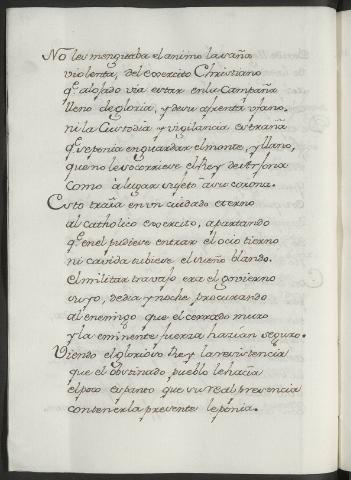 No les menguaba el animo la saña
violenta, del exercito Christiano
q̃ alojado via estar en la Campaña
lleno de gloria, y de su afrenta vfano.
ni la Custodia y vigilancia estraña
q̃ se ponia en guardar el monte, y llano,
que no le socorriese el Rey de
como à lugar sujeto à su corona.
Esto traîa en vn cuidado eterno
al catholico exercito, apartando
q̃ en el pudiese entrar el ocio tierno
ni cavida tubiese el sueño blando.
el militar travajo era el govierno
suyo, de dia y noche, procurando
al enemigo que el cerrado muro
y la eminente fuerza hazian seguro.
Viendo el glorioso Rey la resistencia
que el obstinado pueblo le haçia
el poco espanto que su real presencia
contenerla presente le ponia.